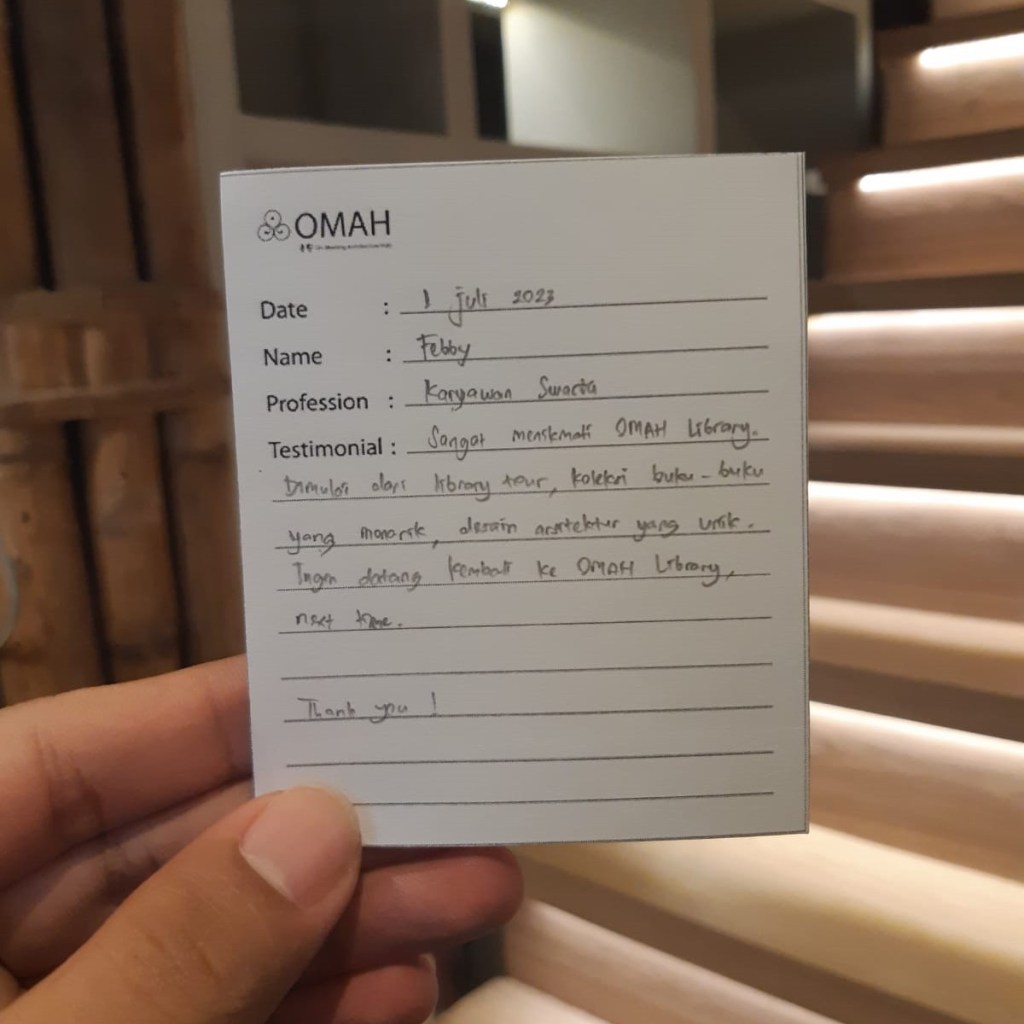 OMAH
Date : 1 Juli 2023
Name : Febby
Profession : Karyawan Swasta
Testimonial : Sangat menikmati OMAH Library.
Dimulai dari library tour, koleksi buku-buku
yang menarik, desain arsitektur yang unik.
Ingin datang kembali ke OMAH Library,
next time.
Thank you!